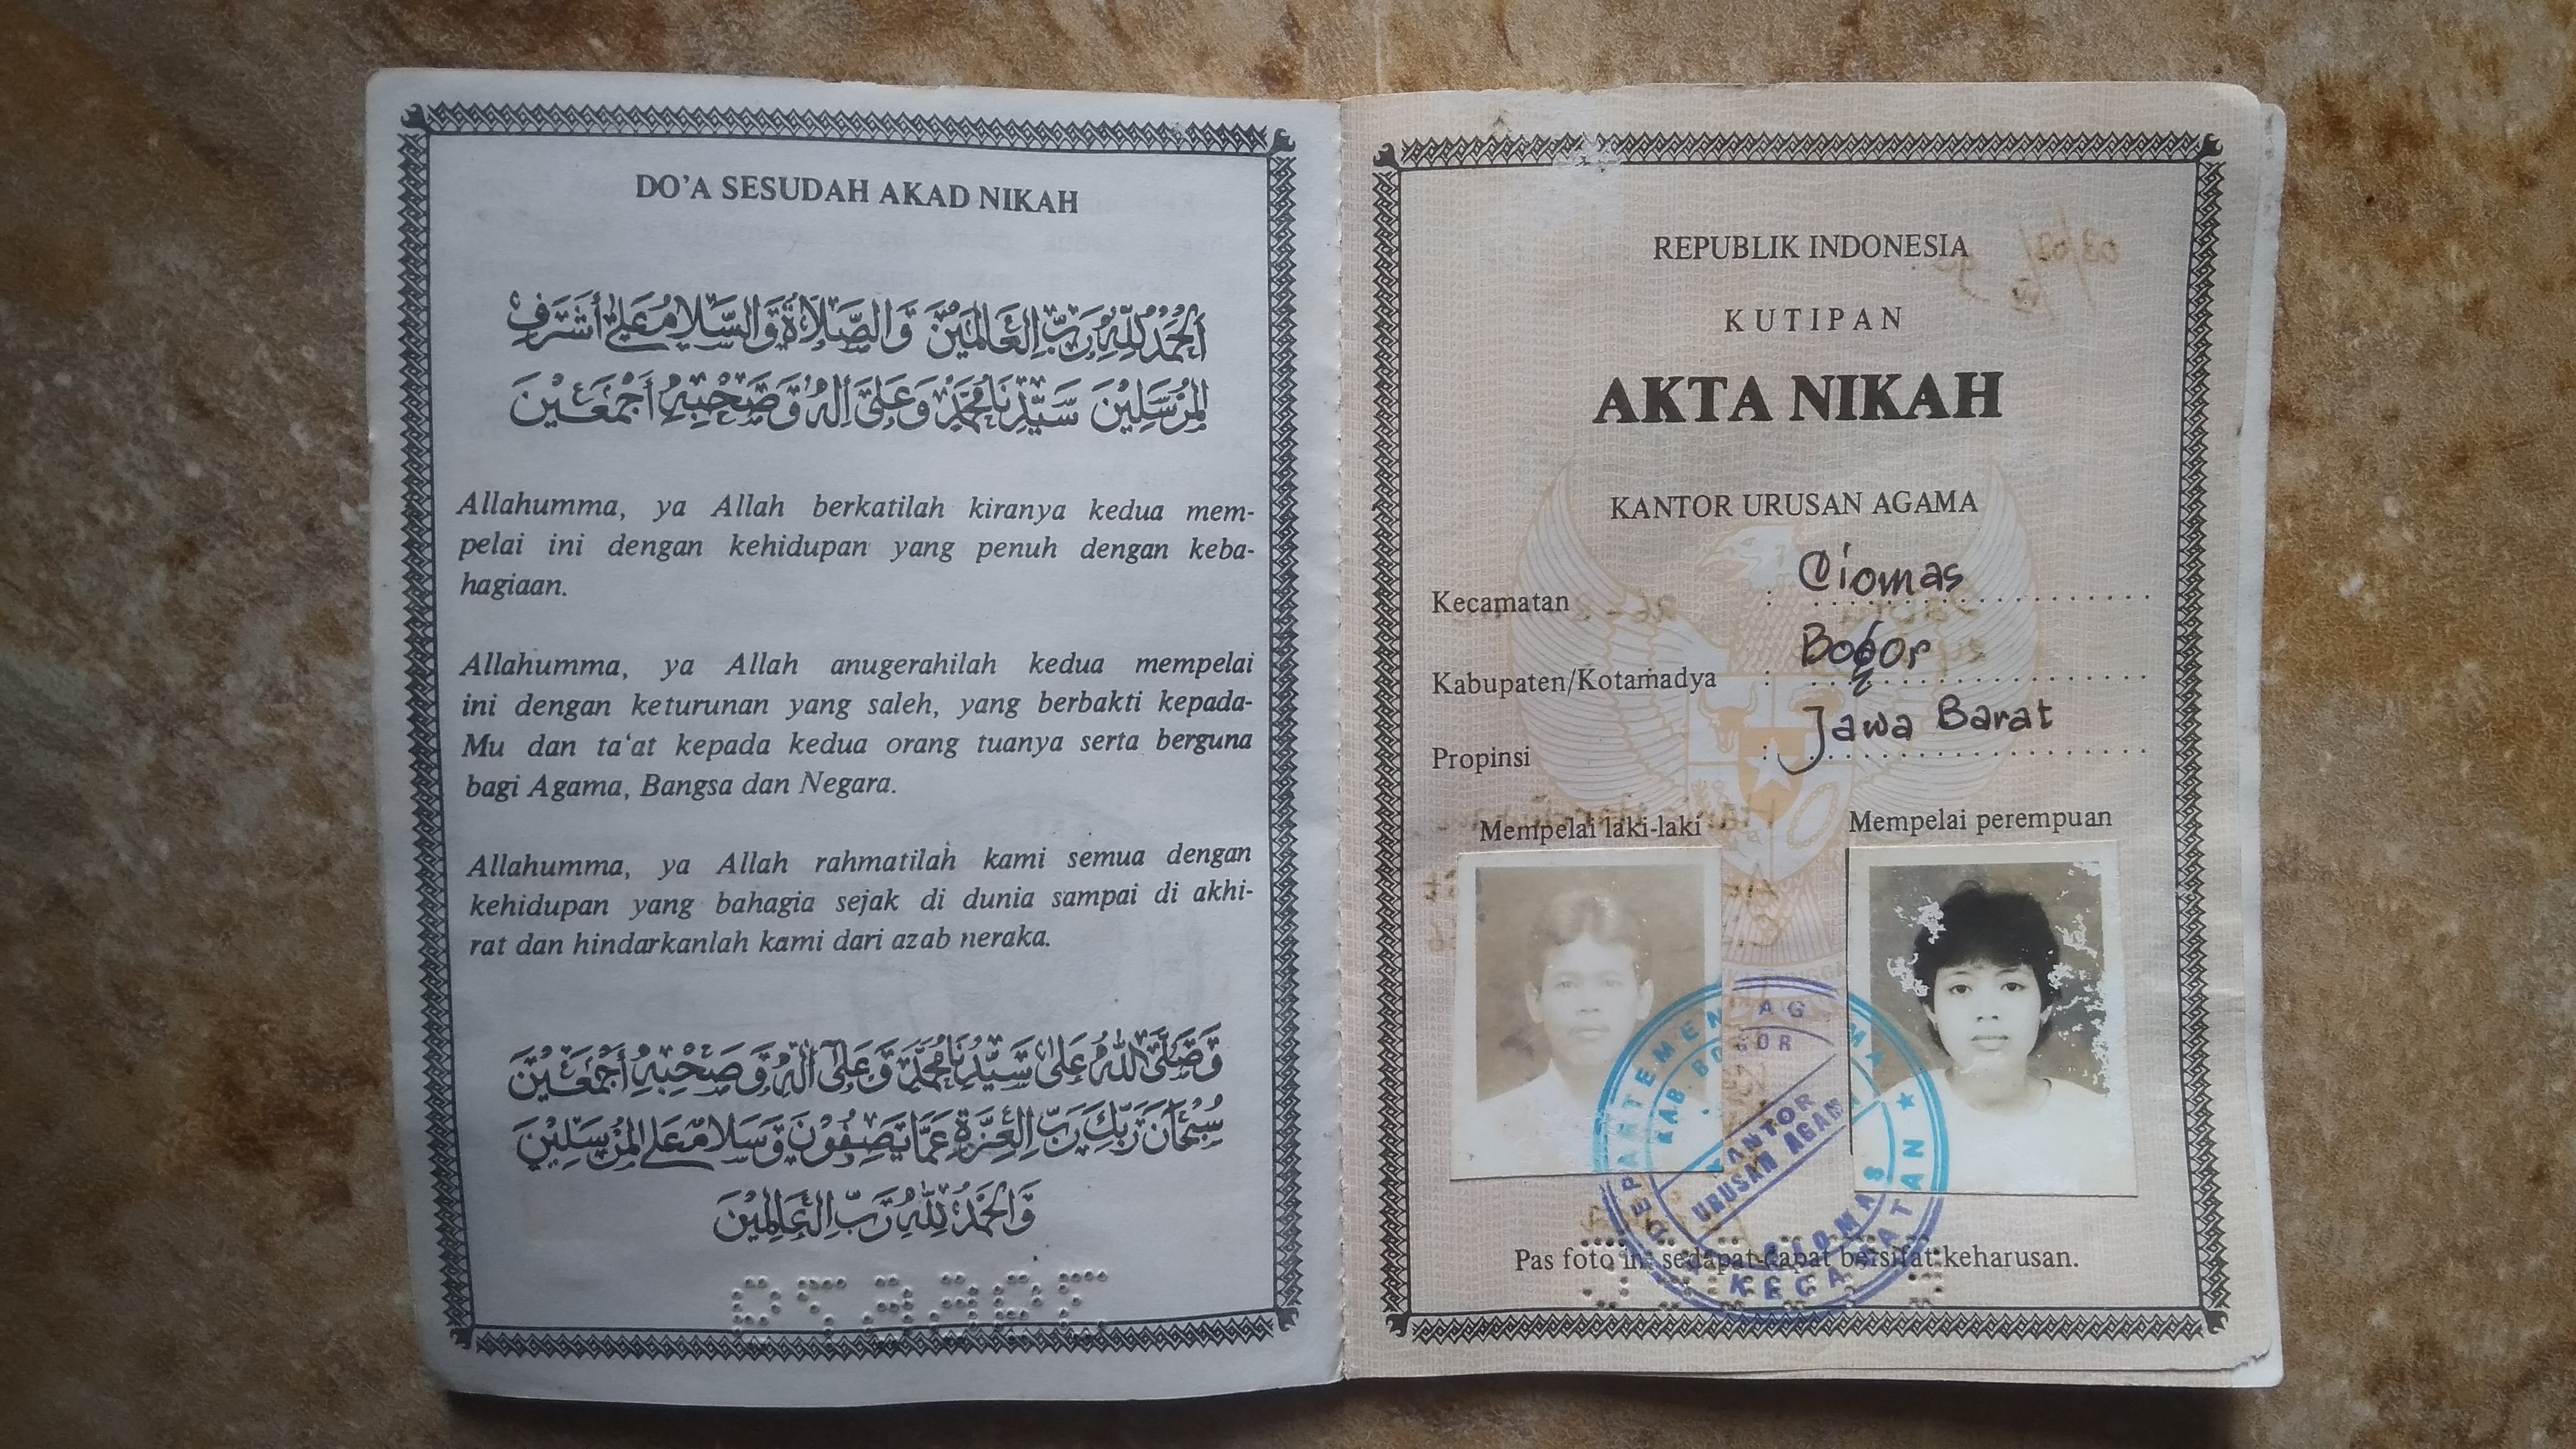 DO'A SESUDAH AKAD NIKAH
اَلْحَمْدُ لِلّٰهِ رَبِّ الْعَالَمِيْنَ وَالصَّلَاةُ وَالسَّلَامُ عَلٰى أَشْرَفِ
الْمُرْسَلِيْنَ سَيِّدِنَا مُحَمَّدٍ وَعَلَى أٰلِهِ وَصَحْبِهِ أَجْمَعِيْنَ
Allahumma, ya Allah berkatilah kiranya kedua mem-
pelai ini dengan kehidupan yang penuh dengan keba-
hagiaan.
Allahumma, ya Allah anugerahilah kedua mempelai
ini dengan keturunan yang saleh, yang berbakti kepada-
Mu dan ta'at kepada kedua orang tuanya serta berguna
bagi Agama, Bangsa dan Negara.
Allahumma, ya Allah rahmatilah kami semua dengan
kehidupan yang bahagia sejak di dunia sampai di akhi-
rat dan hindarkanlah kami dari azab neraka.
وَصَلَّى اللّٰهُ عَلٰى سَيِّدِنَا مُحَمَّدٍ وَعَلٰى أٰلِهِ وَصَحْبِهِ أَجْمَعِيْنَ
سُبْحَانَ رَبِّكَ رَبِّ الْعِزَّةِ عَمَّا يَصِفُوْنَ وَسَلَامٌ عَلَى الْمُرْسَلِيْنَ
وَالْحَمْدُ لِلّٰهِ رَبِّ الْعَالَمِيْنَ
REPUBLIK INDONESIA
KUTIPAN
AKTA NIKAH
KANTOR URUSAN AGAMA
Kecamatan : Ciomas
Kabupaten/Kotamadya : Bogor
Propinsi : Jawa Barat
Mempelai laki-laki Mempelai perempuan
DEPARTEMEN AGAMA
KAB. BOGOR
KANTOR
URUSAN AGAMA
CIOMAS
KECAMATAN
Pas foto ini sedapat-dapat bersifat keharusan.